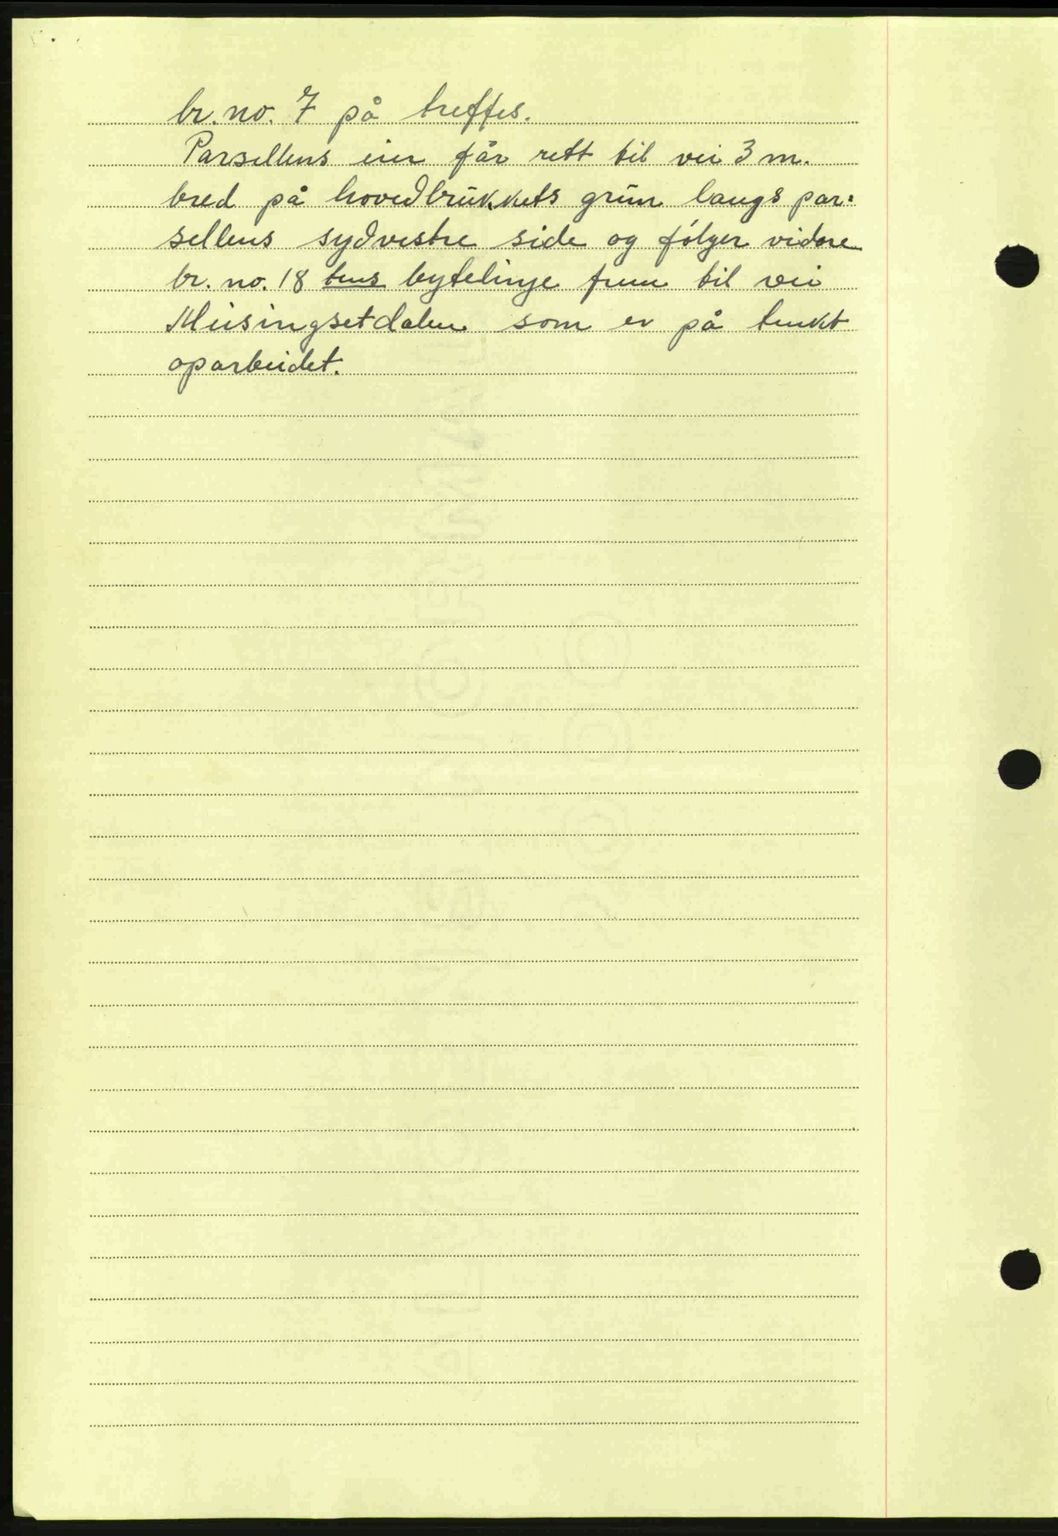 br. no. 7 på treffes.
Parsellens eier får rett til vei 3 m.
bred på hovedbrukkets grun langs par=
sellens sydvestre side og følger vidare
br. no. 18 tens bytelinje frem til vei
Meisingsetdalen som er på tenkt
oparbeidet.